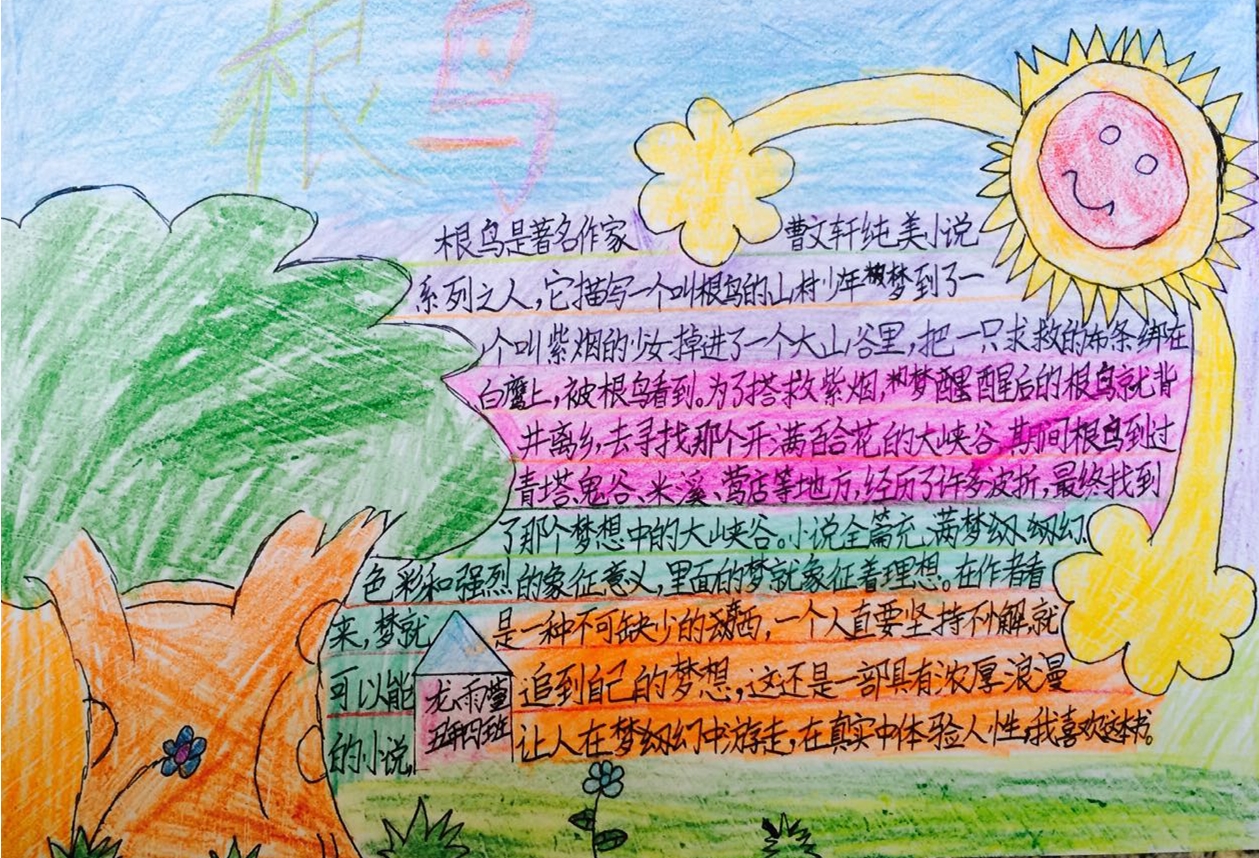 根鸟
根鸟是著名作家 曹文轩纯美小说
系列之人,它描写一个叫根鸟的山村少年梦到了一
个叫紫烟的少女掉进了一个大山谷里,把一只求救的布条绑在
白鹰上,被根鸟看到。为了搭救紫烟,梦醒醒后的根鸟就背
井离乡,去寻找那个开满百合花的大峡谷,期间根鸟到过
青塔、鬼谷、米溪、莺店等地方,经历了许多皮折,最终找到
了那个梦想中的大山峡谷。小说全篇充满梦幻、幻
色彩和强烈的象征意义,里面的梦就象征着理想。在作者看
来,梦就 是一种不可缺少的东西,一个人直要坚持不懈,就
可以能 追到自己的梦想,这还是一部具有浓厚浪漫
的小说, 让人在梦幻中游走,在真实中体验人性,我喜欢这本书。
龙雨莹
五年四班